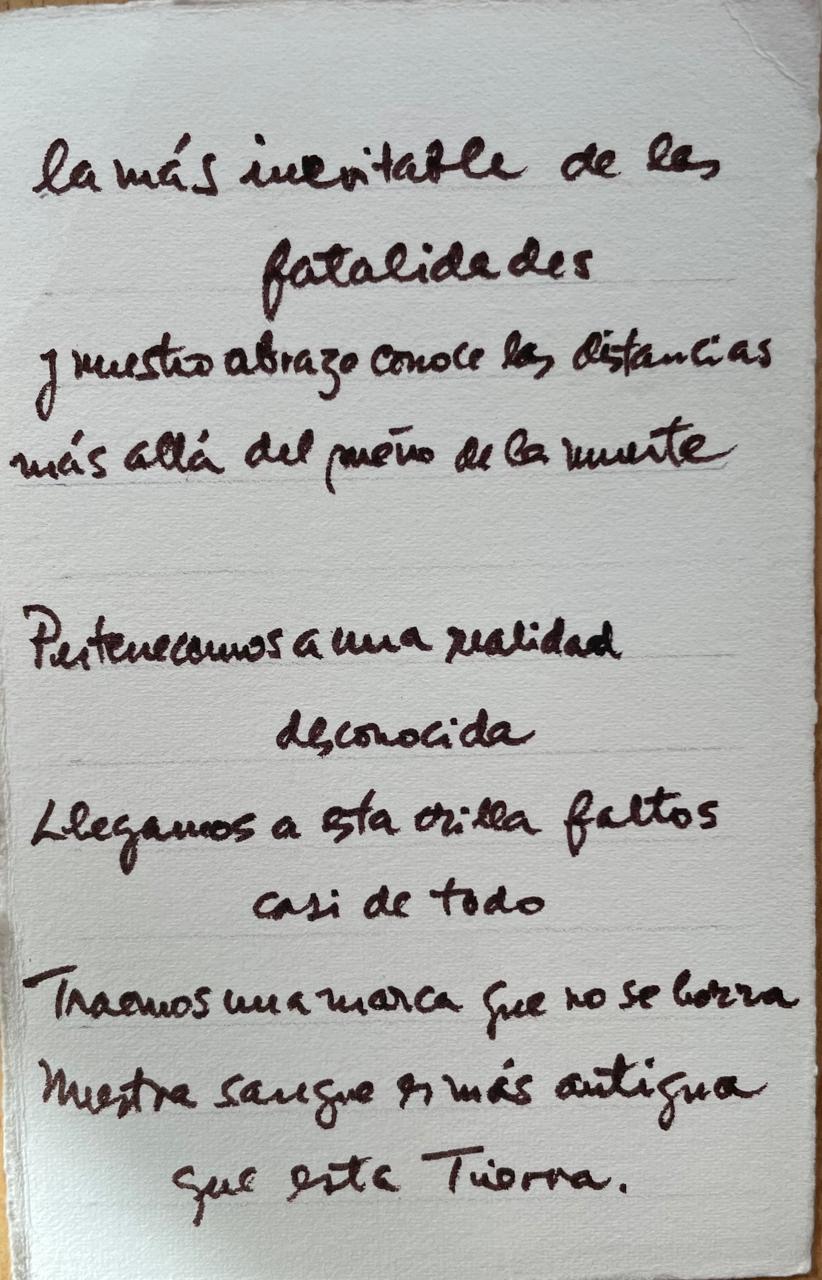 la más inevitable de las
fatalidades
y nuestro abrazo conoce las distancias
más allá del sueño de la muerte
Pertenecemos a una realidad
desconocida
Llegamos a esta orilla faltos
casi de todo
Traemos una marca que no se borra
Nuestra sangre es más antigua
que esta Tierra.